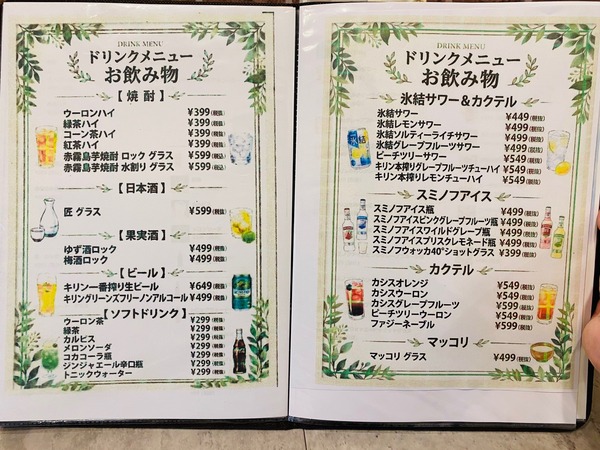 DRINK MENU
ドリンクメニュー
お飲み物
【焼酎】
ウーロンハイ ¥399(税抜)
緑茶ハイ ¥399(税抜)
コーン茶ハイ ¥399(税抜)
紅茶ハイ ¥399(税抜)
赤霧島芋焼酎 ロック グラス ¥599(税込)
赤霧島芋焼酎 水割り グラス ¥599(税込)
【日本酒】
匠 グラス ¥599(税抜)
【果実酒】
ゆず酒ロック ¥499(税抜)
梅酒ロック ¥499(税抜)
【ビール】
キリン一番搾り生ビール ¥649(税抜)
キリングリーンズフリーノンアルコール ¥499(税抜)
【ソフトドリンク】
ウーロン茶 ¥299(税抜)
緑茶 ¥299(税抜)
カルピス ¥299(税抜)
メロンソーダ ¥299(税抜)
コカコーラ瓶 ¥299(税抜)
ジンジャエール辛口瓶 ¥299(税抜)
トニックウォーター ¥299(税抜)
DRINK MENU
ドリンクメニュー
お飲み物
氷結サワー＆カクテル
氷結サワー ¥449(税抜)
氷結レモンサワー ¥499(税抜)
氷結ソルティーライチサワー ¥499(税抜)
氷結グレープフルーツサワー ¥499(税抜)
ピーチツリーサワー ¥549(税抜)
キリン本搾りグレープフルーツチューハイ ¥549(税抜)
キリン本搾りレモンチューハイ ¥549(税抜)
スミノフアイス
スミノフアイス瓶 ¥499(税抜)
スミノフアイスピングレープフルーツ瓶 ¥499(税抜)
スミノフアイスワイルドグレープ瓶 ¥499(税抜)
スミノフアイスブリスクレモネード瓶 ¥499(税抜)
スミノフウォッカ40°ショットグラス ¥399(税抜)
カクテル
カシスオレンジ ¥549(税抜)
カシスウーロン ¥549(税抜)
カシスグレープフルーツ ¥599(税抜)
ピーチツリーウーロン ¥549(税抜)
ファジーネーブル ¥599(税抜)
マッコリ
マッコリ グラス ¥499(税抜)